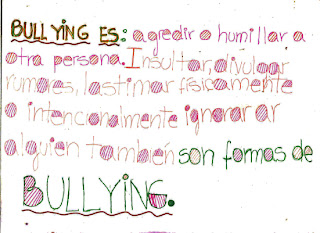 BULLYING ES: agredir o humillar a
otra persona. Insultar, divulgar
rumores, lastimar físicamente
o intencionalmente ignorar ar
alguien también son formas de
BULLYING.